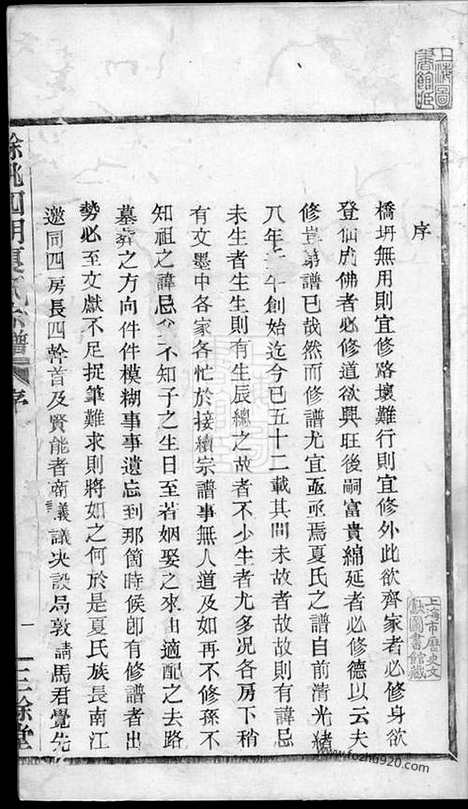 序
橋坍無用則宜修路壞難行則宜修外此欲齊家者必修身欲
登仙成佛者必修道欲興旺後嗣富貴綿延者必修德以云夫
修豈第譜已哉然而修譜尤宜亟亟焉夏氏之譜自前清光緒
八年壬午創始迄今已五十二載其間未故者故故則有諱忌
未生者生生則有生辰總之故者不少生者尤多況各房下稍
有文墨中各家各忙於接續宗譜事無人道及如再不修孫不
知祖之諱忌父不知子之生日至若姻娶之來由適配之去路
墓葬之方向件件模糊事事遺忘到那箇時候卽有修譜者出
勢必至文獻不足捉筆難求則將如之何於是夏氏族長南江
邀同四房長四幹首及賢能者商議議決設局敦請馬君覺先
餘姚四明夏氏宗譜
序
一
三餘堂
上海圖書館藏
上海市歷史文獻圖書館藏
www.fozhu920.com